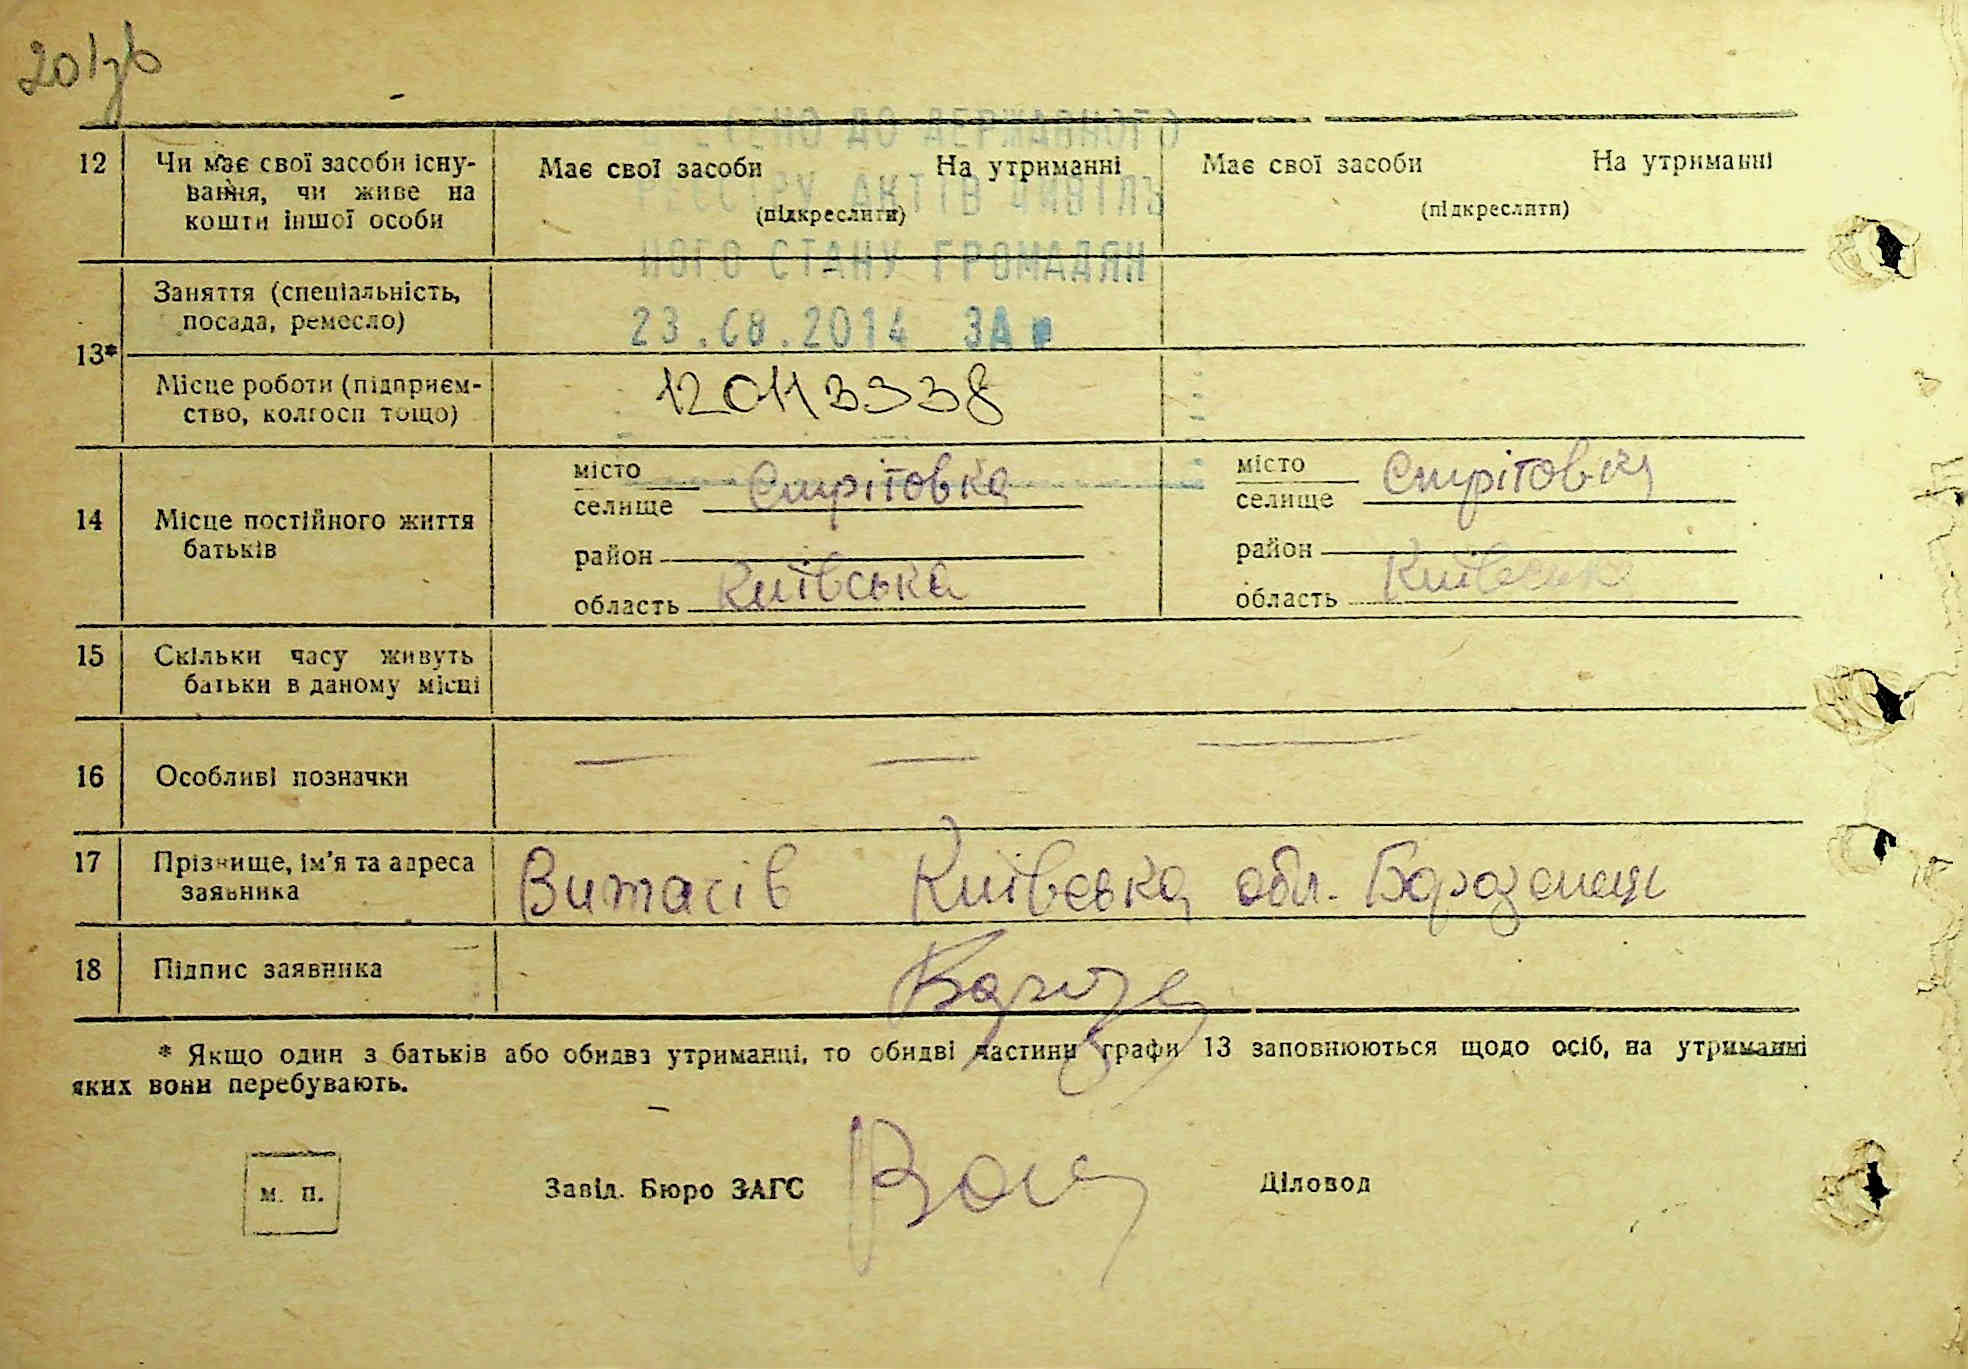 201зв
12 Чи має свої засоби існу-
вання, чи живе на
кошти іншої особи
Має свої засоби На утриманні
(підкреслити)
Має свої засоби На утриманні
(підкреслити)
ДО ДЕРЖАВНОГО
РЕЄСТРУ АКТІВ ЦИВІЛЬ
НОГО СТАНУ ГРОМАДЯН
23.08.2014 ЗА №
12013338
13* Заняття (спеціальність,
посада, ремесло)
Місце роботи (підприєм-
ство, колгосп тощо)
14 Місце постійного життя
батьків
місто
селище Спрітовка
район
область Київська
місто
селище Спрітовка
район
область Київська
15 Скільки часу живуть
батьки в даному місці
16 Особливі позначки
17 Прізвище, ім'я та адреса
заявника
Витасів Київська обл.
18 Підпис заявника
* Якщо один з батьків або обидва утриманці, то обидві частини графи 13 заповнюються щодо осіб, на утриманні
яких вони перебувають.
М. П.
Завід. Бюро ЗАГС
Діловод